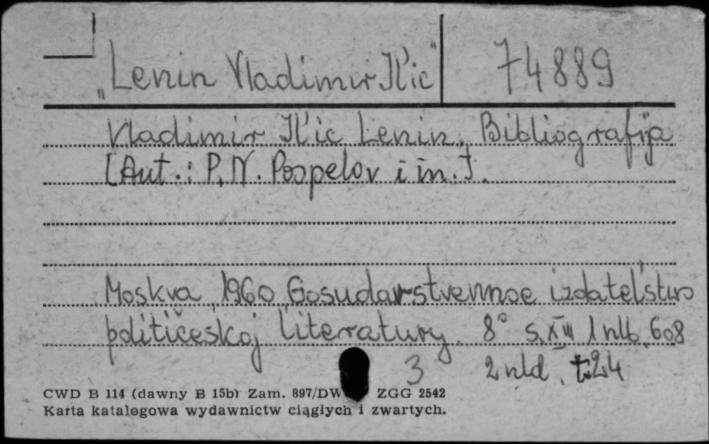 „Lenin Vladimir Il'ic" 74889
Vladimir Il'ic Lenin. Bibliografija
[Aut.: P. N. Pospelov i in.].
Moskva 1960 Gosudarstvennoe izdatel'stvo
političeskoj literatury. 8° s. XIII 1 nlb. 608
3 2 nld. t. 24
CWD B 114 (dawny B 15b) Zam. 897/DW ZGG 2542
Karta katalogowa wydawnictw ciągłych i zwartych.